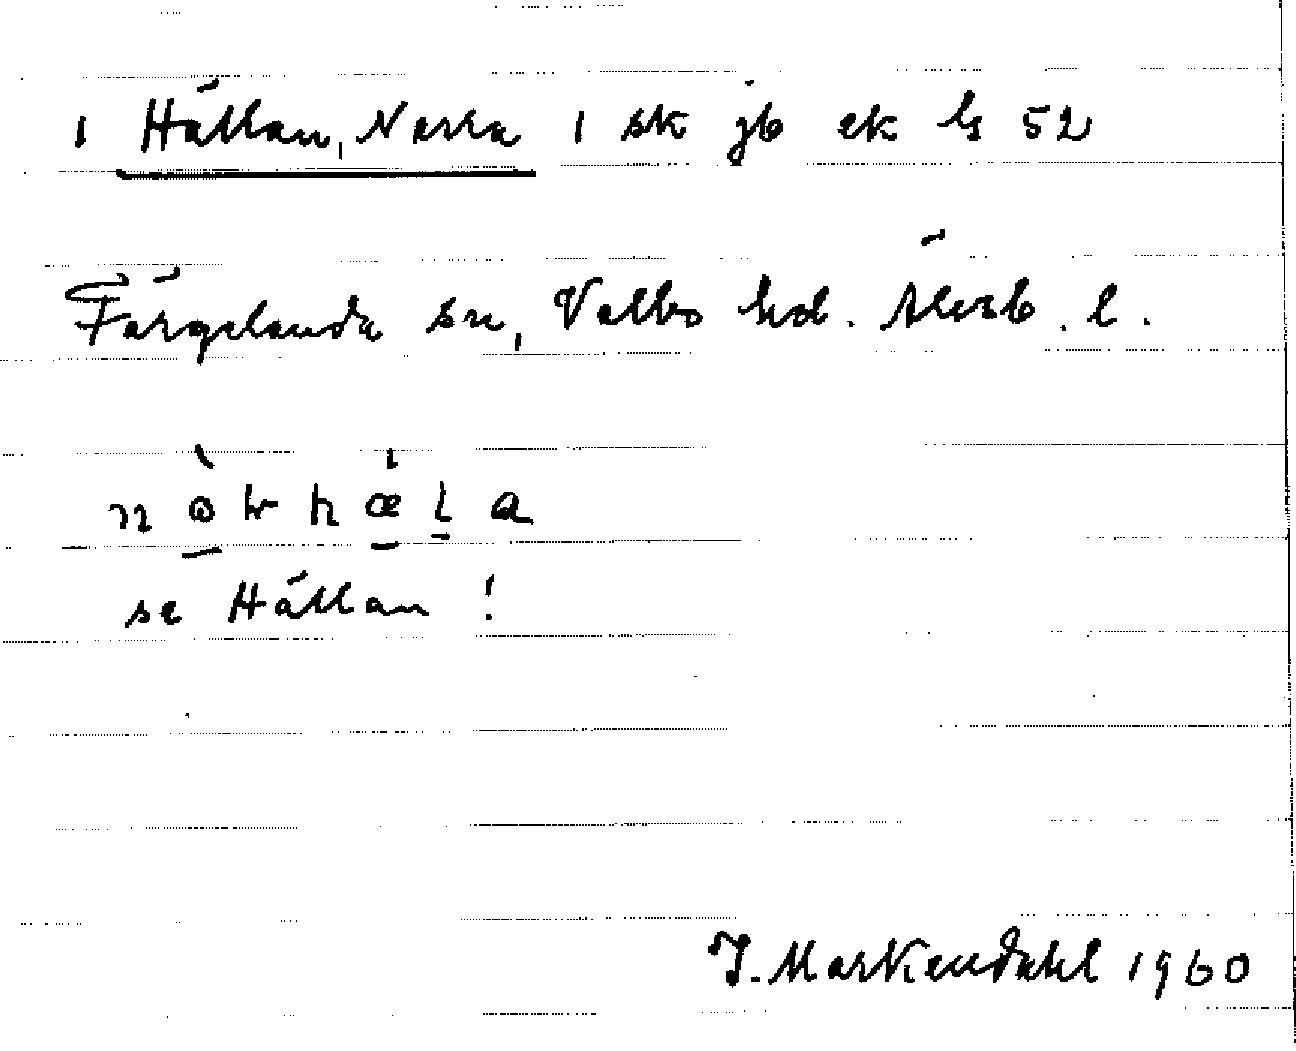 1 Hällan, Norra 1 sk jb ek bl 52
Färgelanda sn, Valbo hd. Älvsb. l.
se Hällan!
J. Markendahl 1960